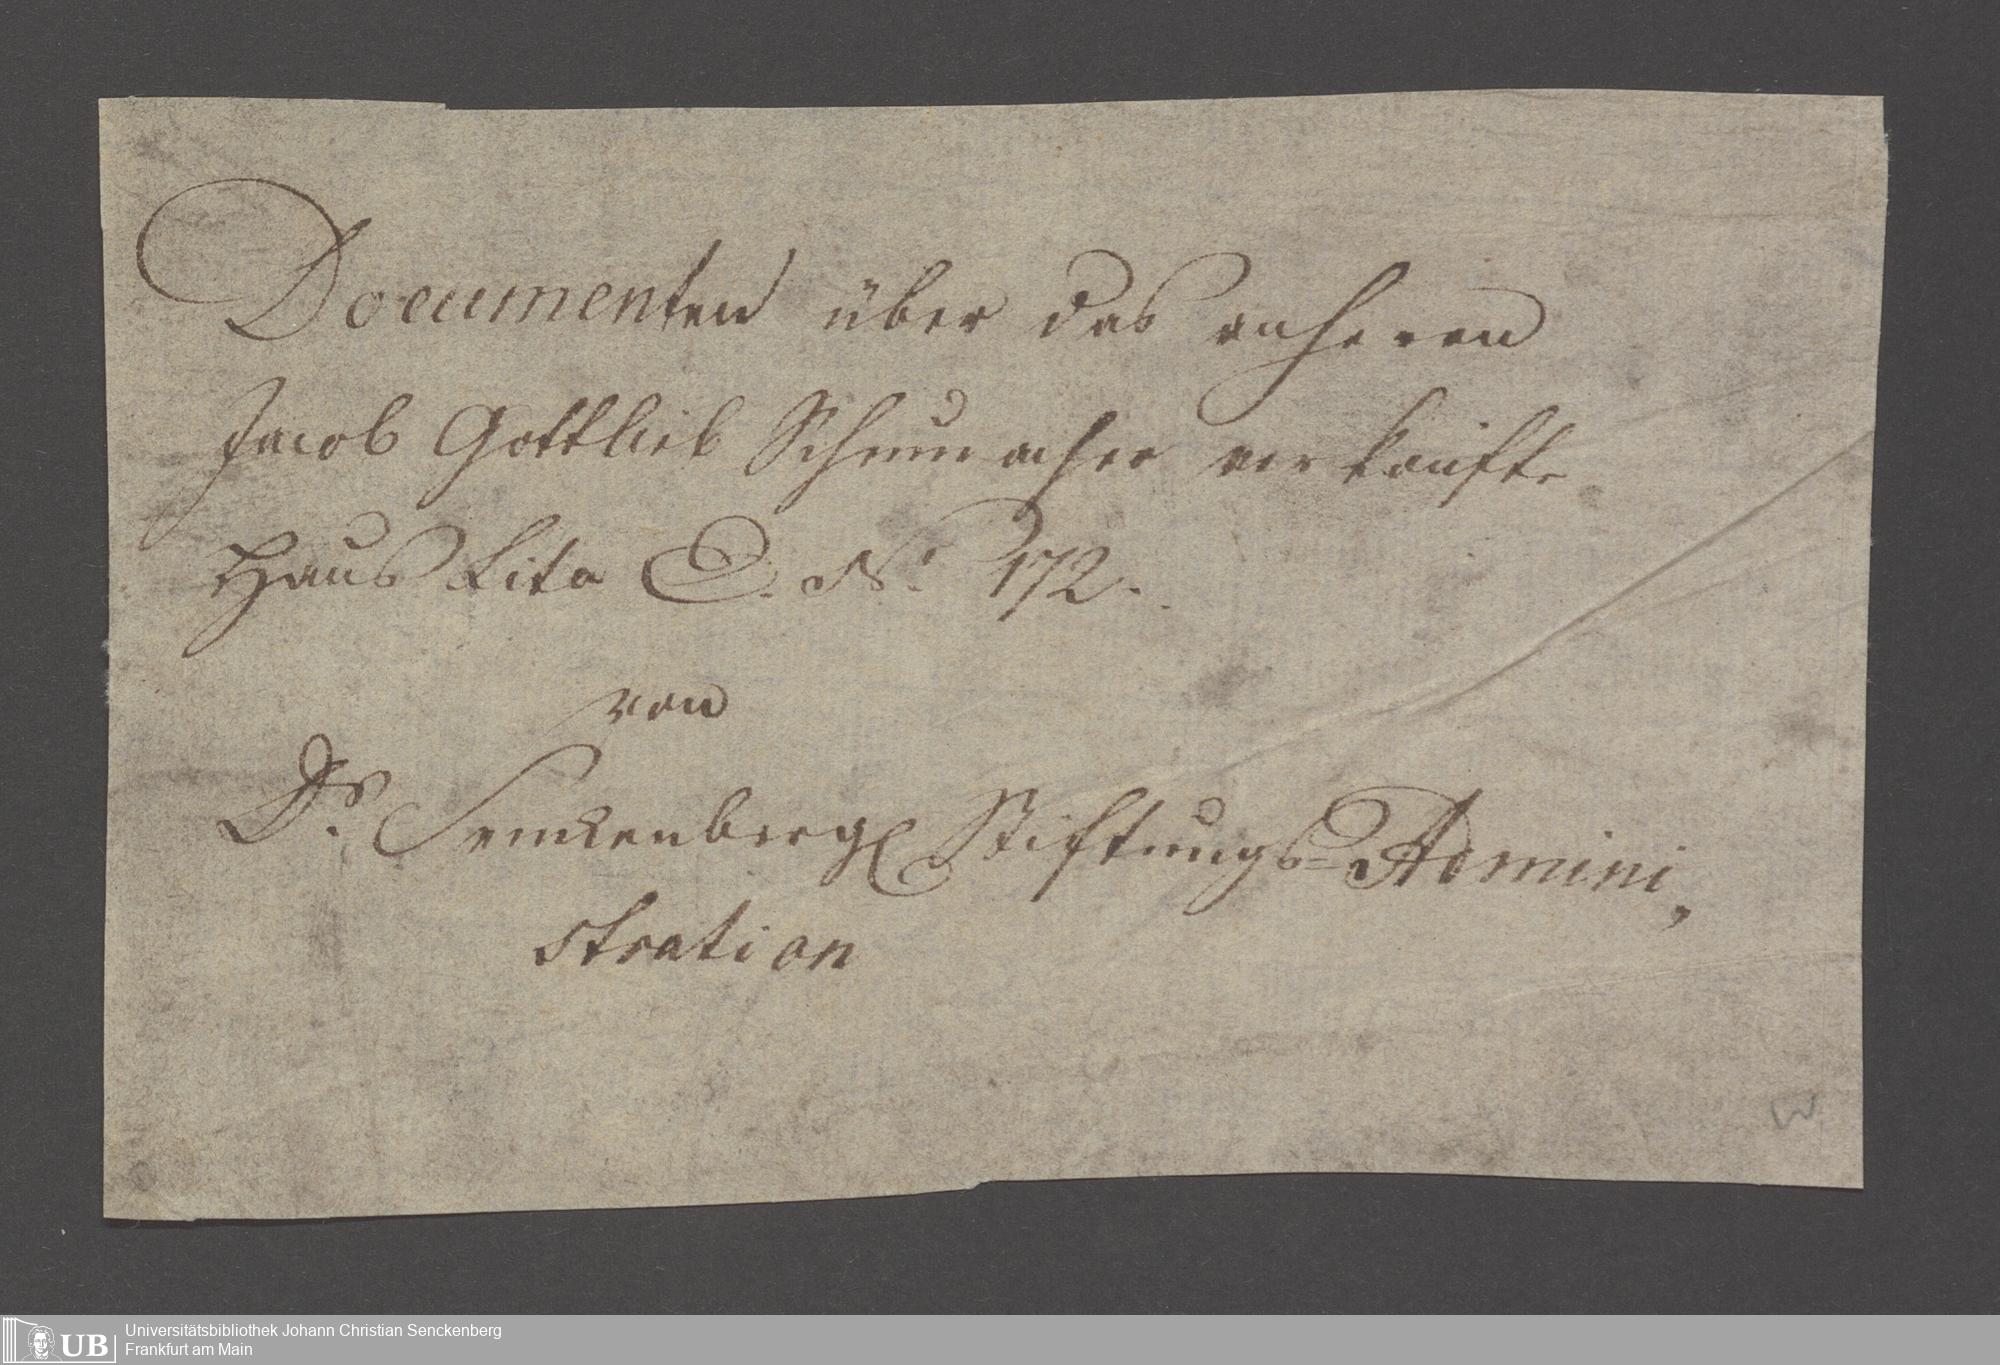 Documenten über das an Herren
Jacob Gottlieb Schumacher verkaufte
Haus Lita D. No. 172.
von
Dr. Senckenberg. Stiftungs-Admini
stration
W
Universitätsbibliothek Johann Christian Senckenberg
UB
Frankfurt am Main